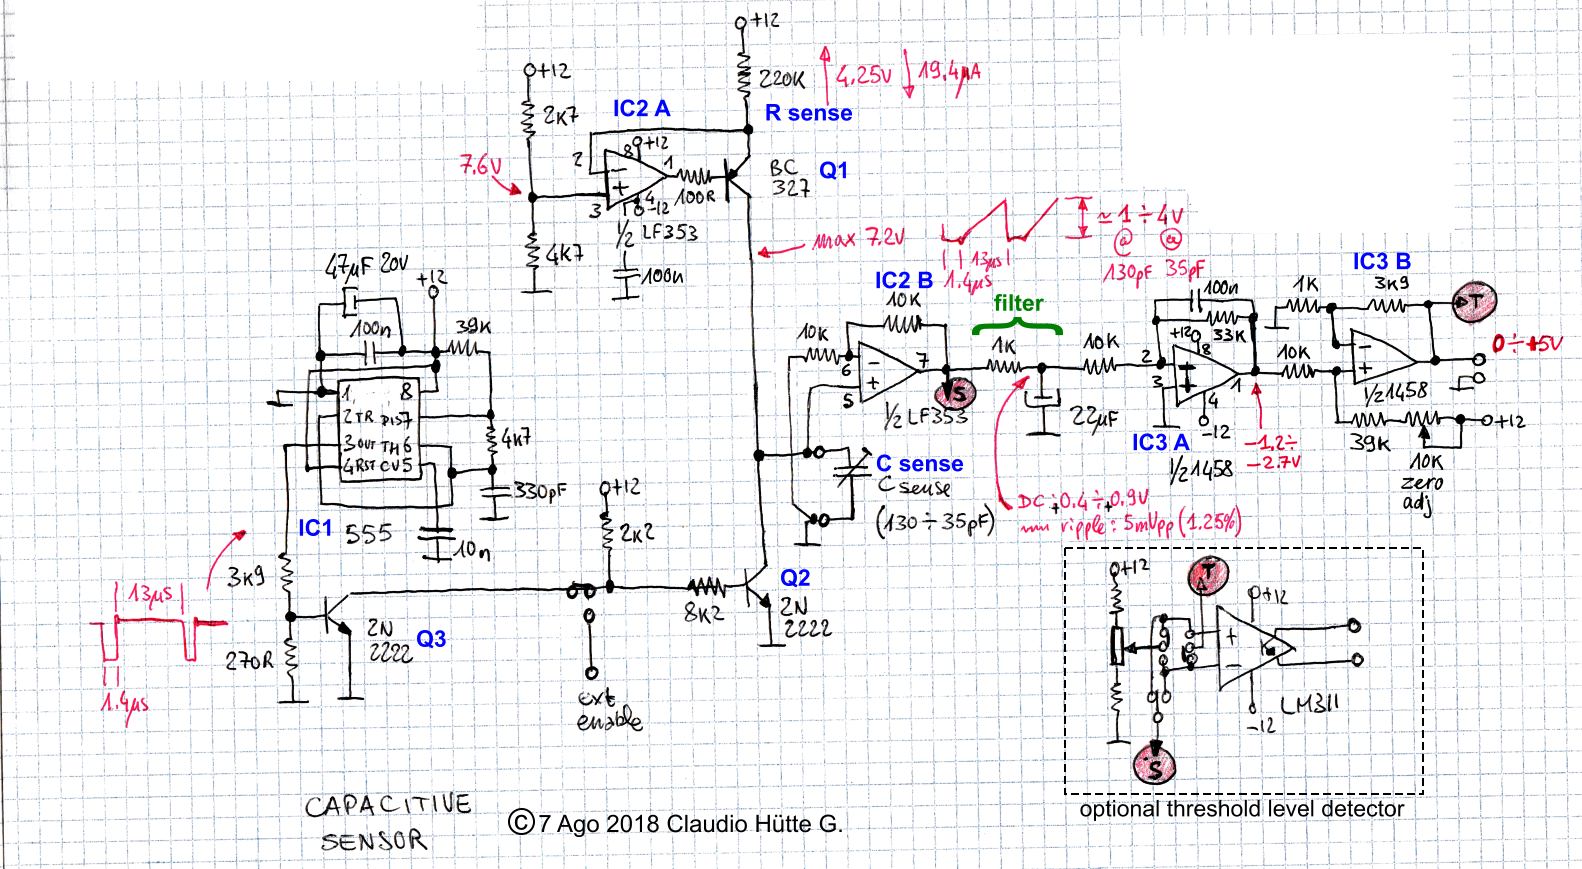 +12
220K
4.25V
19.4µA
R sense
+12
2K7
IC2 A
2
8
+12
1
3
4
-12
100R
BC
327
Q1
7.6V
½ LF353
4K7
100n
max 7.2V
13µs
1.4µs
≃ 1 ÷ 4V
@ @
130pF 35pF
47µF 20V
+12
100n
39K
1 8
2 TR DIS 7
3 OUT TH 6
4 RST CV 5
4K7
330pF
IC1 555
10n
3K9
13µs
1.4µs
270R
2N
2222
Q3
+12
2K2
8K2
Q2
2N
2222
ext
enable
IC2 B
10K
10K
6
7
5
S
½ LF353
C sense
C sense
(130 ÷ 35pF)
filter
1K
22µF
DC +0.4 ÷ +0.9V
min ripple: 5mVpp (1.25%)
10K
100n
33K
+12
8
2
3
1
4
-12
IC3 A
½ 1458
-1.2 ÷
-2.7V
IC3 B
1K
3K9
T
10K
0 ÷ +5V
½ 1458
39K
+12
10K
zero
adj
+12
T
+12
LM311
-12
S
optional threshold level detector
CAPACITIVE
SENSOR
© 7 Ago 2018 Claudio Hütte G.